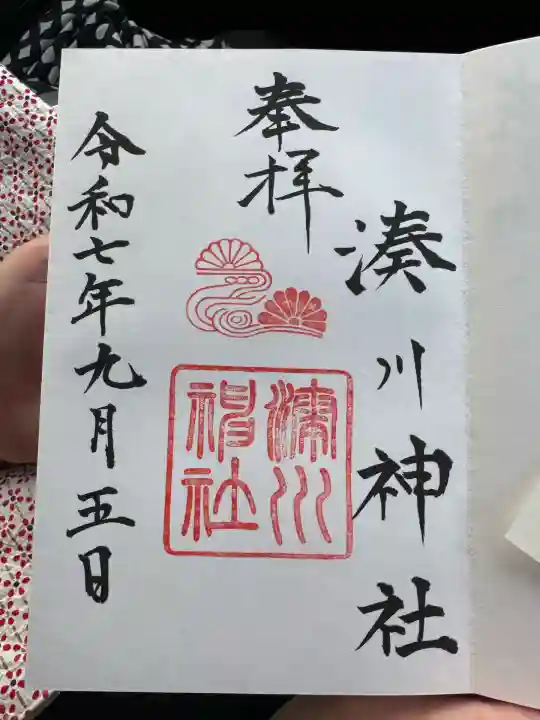 湊川神社
奉拝
湊川
神社
令和七年九月五日